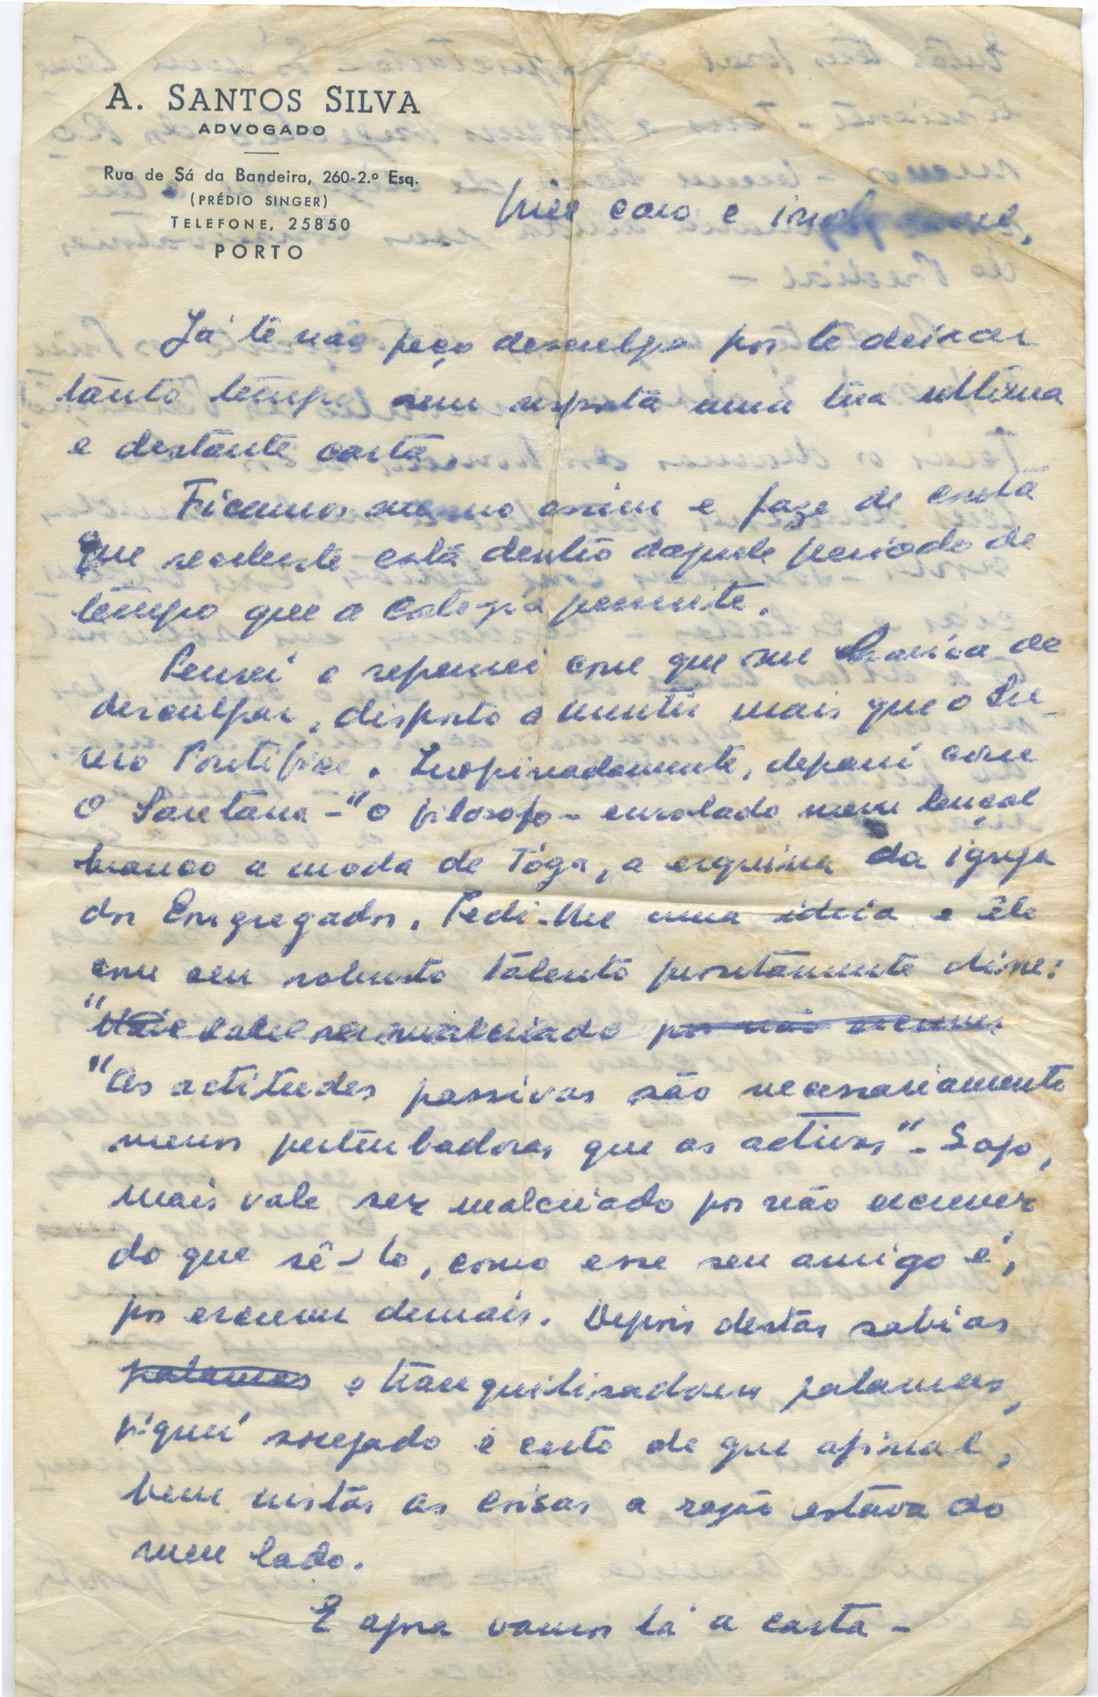 A. SANTOS SILVA
ADVOGADO
Rua de Sá da Bandeira, 260-2.º Esq.
(PRÉDIO SINGER)
TELEFONE, 25850
PORTO
caro e
Já te não peço desculpa por te deixar
tanto tempo sem resposta uma tua ultima
e distante carta
Ficamos mesmo assim e faze de conta
que recebeste está dentro daquele periodo de
tempo que a permite.
Pensei e repensei com que me havia de
desculpar, disposto a mentir mais que o Su-
mo Pontifice. Inopinadamente, deparei com
o Santana - "o filosofo - enrolado num lençol
branco a moda de Tóga, a esquina da igreja
dos Congregados. Pedi-lhe uma ideia e êle
com seu robusto talento prontamente disse:
"Mais vale ser malcriado por não escrever
"As actitudes passivas são necessariamente
menos perturbadoras que as activas" - Logo,
mais vale ser malcriado por não escrever
do que sê-lo, como esse seu amigo é,
por escrever demais. Depois destas sabias
palavras e tranquilisadoras palavras,
fiquei socegado e certo de que afinal,
bem vistas as coisas a razão estava do
meu lado.
E agora vamos lá a carta -